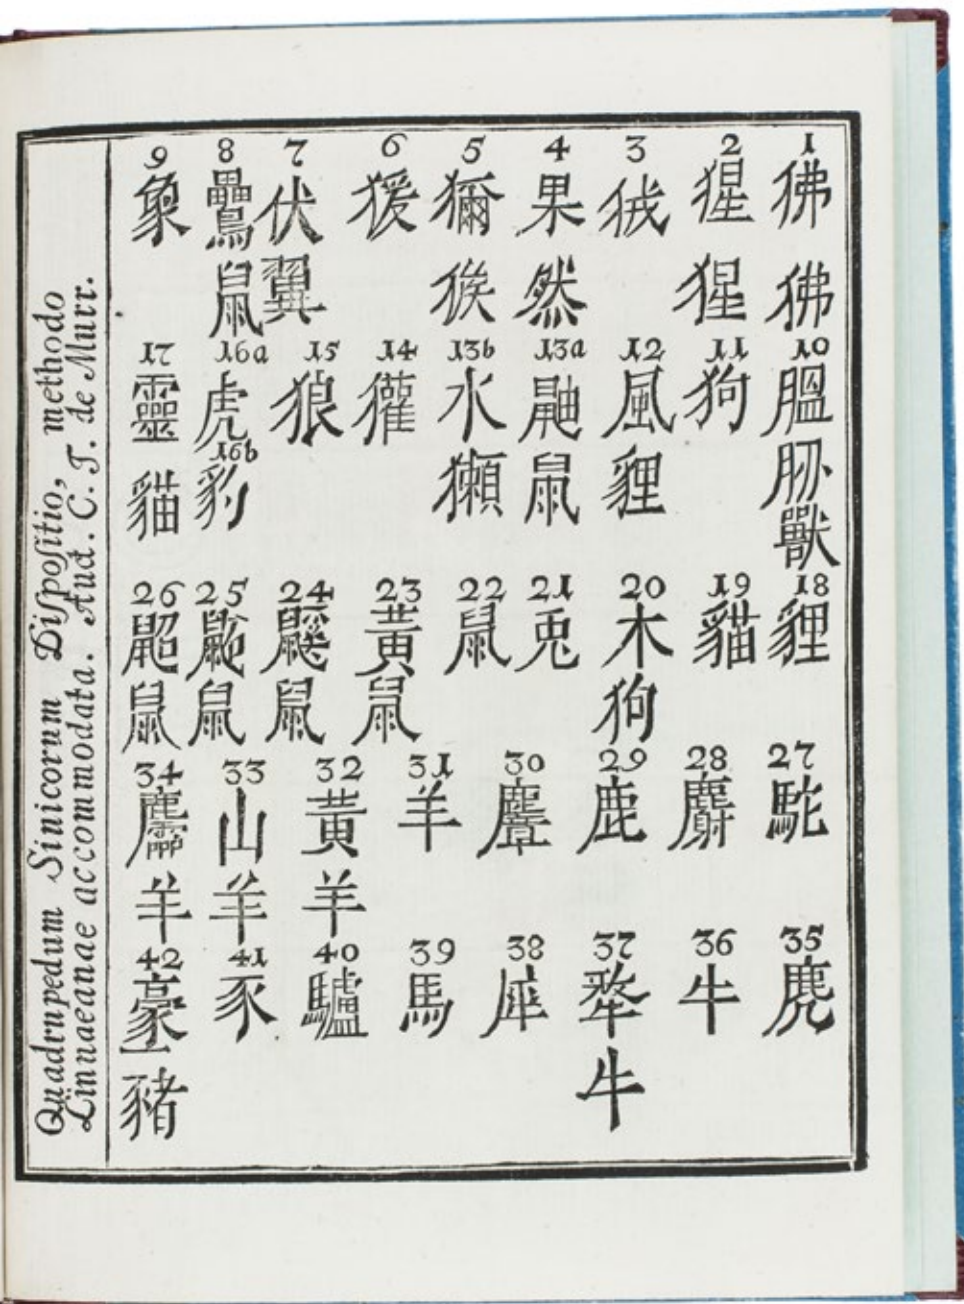 Quadrupedum Sinicorum Dispositio, methodo
Linnaeanae accommodata. Auct. C. T. de Murr.
1 狒狒
2 猩猩
3 狨
4 果然
5 獮猴
6 猨
7 伏翼
8 鸓鼠
9 象
10 膃肭獸
11 狗
12 風貍
13a 鼬鼠
13b 水獺
14 獾
15 狼
16a 虎
16b 豹
17 靈貓
18 貍
19 貓
20 木狗
21 兎
22 鼠
23 黃鼠
24 鼷鼠
25 鼢鼠
26 鼦鼠
27 駝
28 麝
29 鹿
30 麞
31 羊
32 黃羊
33 山羊
34 麢羊
35 麂
36 牛
37 犛牛
38 犀
39 馬
40 驢
41 豕
42 豪豬